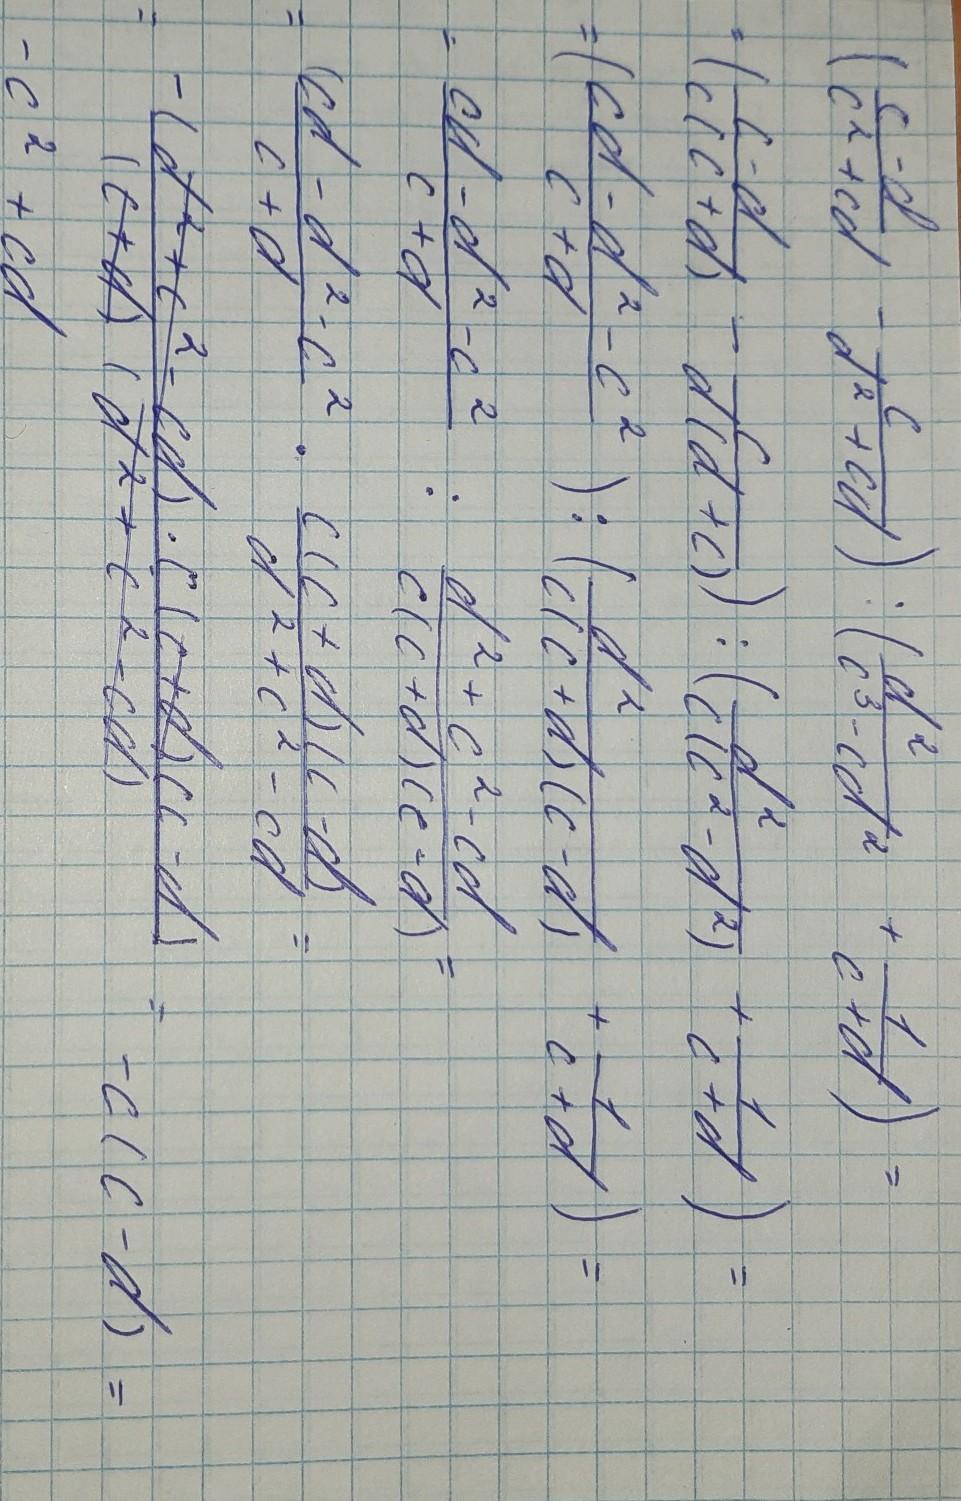 ((c-d)/(c²+cd) - c/(d²+cd)) : (d²/(c³-cd²) + 1/(c+d)) =
= ((c-d)/(c(c+d)) - c/(d(d+c))) : (d²/(c(c²-d²)) + 1/(c+d)) =
= ((cd-d²-c²)/(c+d)) : (d²/(c(c+d)(c-d)) + 1/(c+d)) =
= (cd-d²-c²)/(c+d) : (d²+c²-cd)/(c(c+d)(c-d)) =
= (cd-d²-c²)/(c+d) · (c(c+d)(c-d))/(d²+c²-cd) =
= (-(d²+c²-cd)·c(c+d)(c-d))/((c+d)(d²+c²-cd)) = -c(c-d) =
-c²+cd